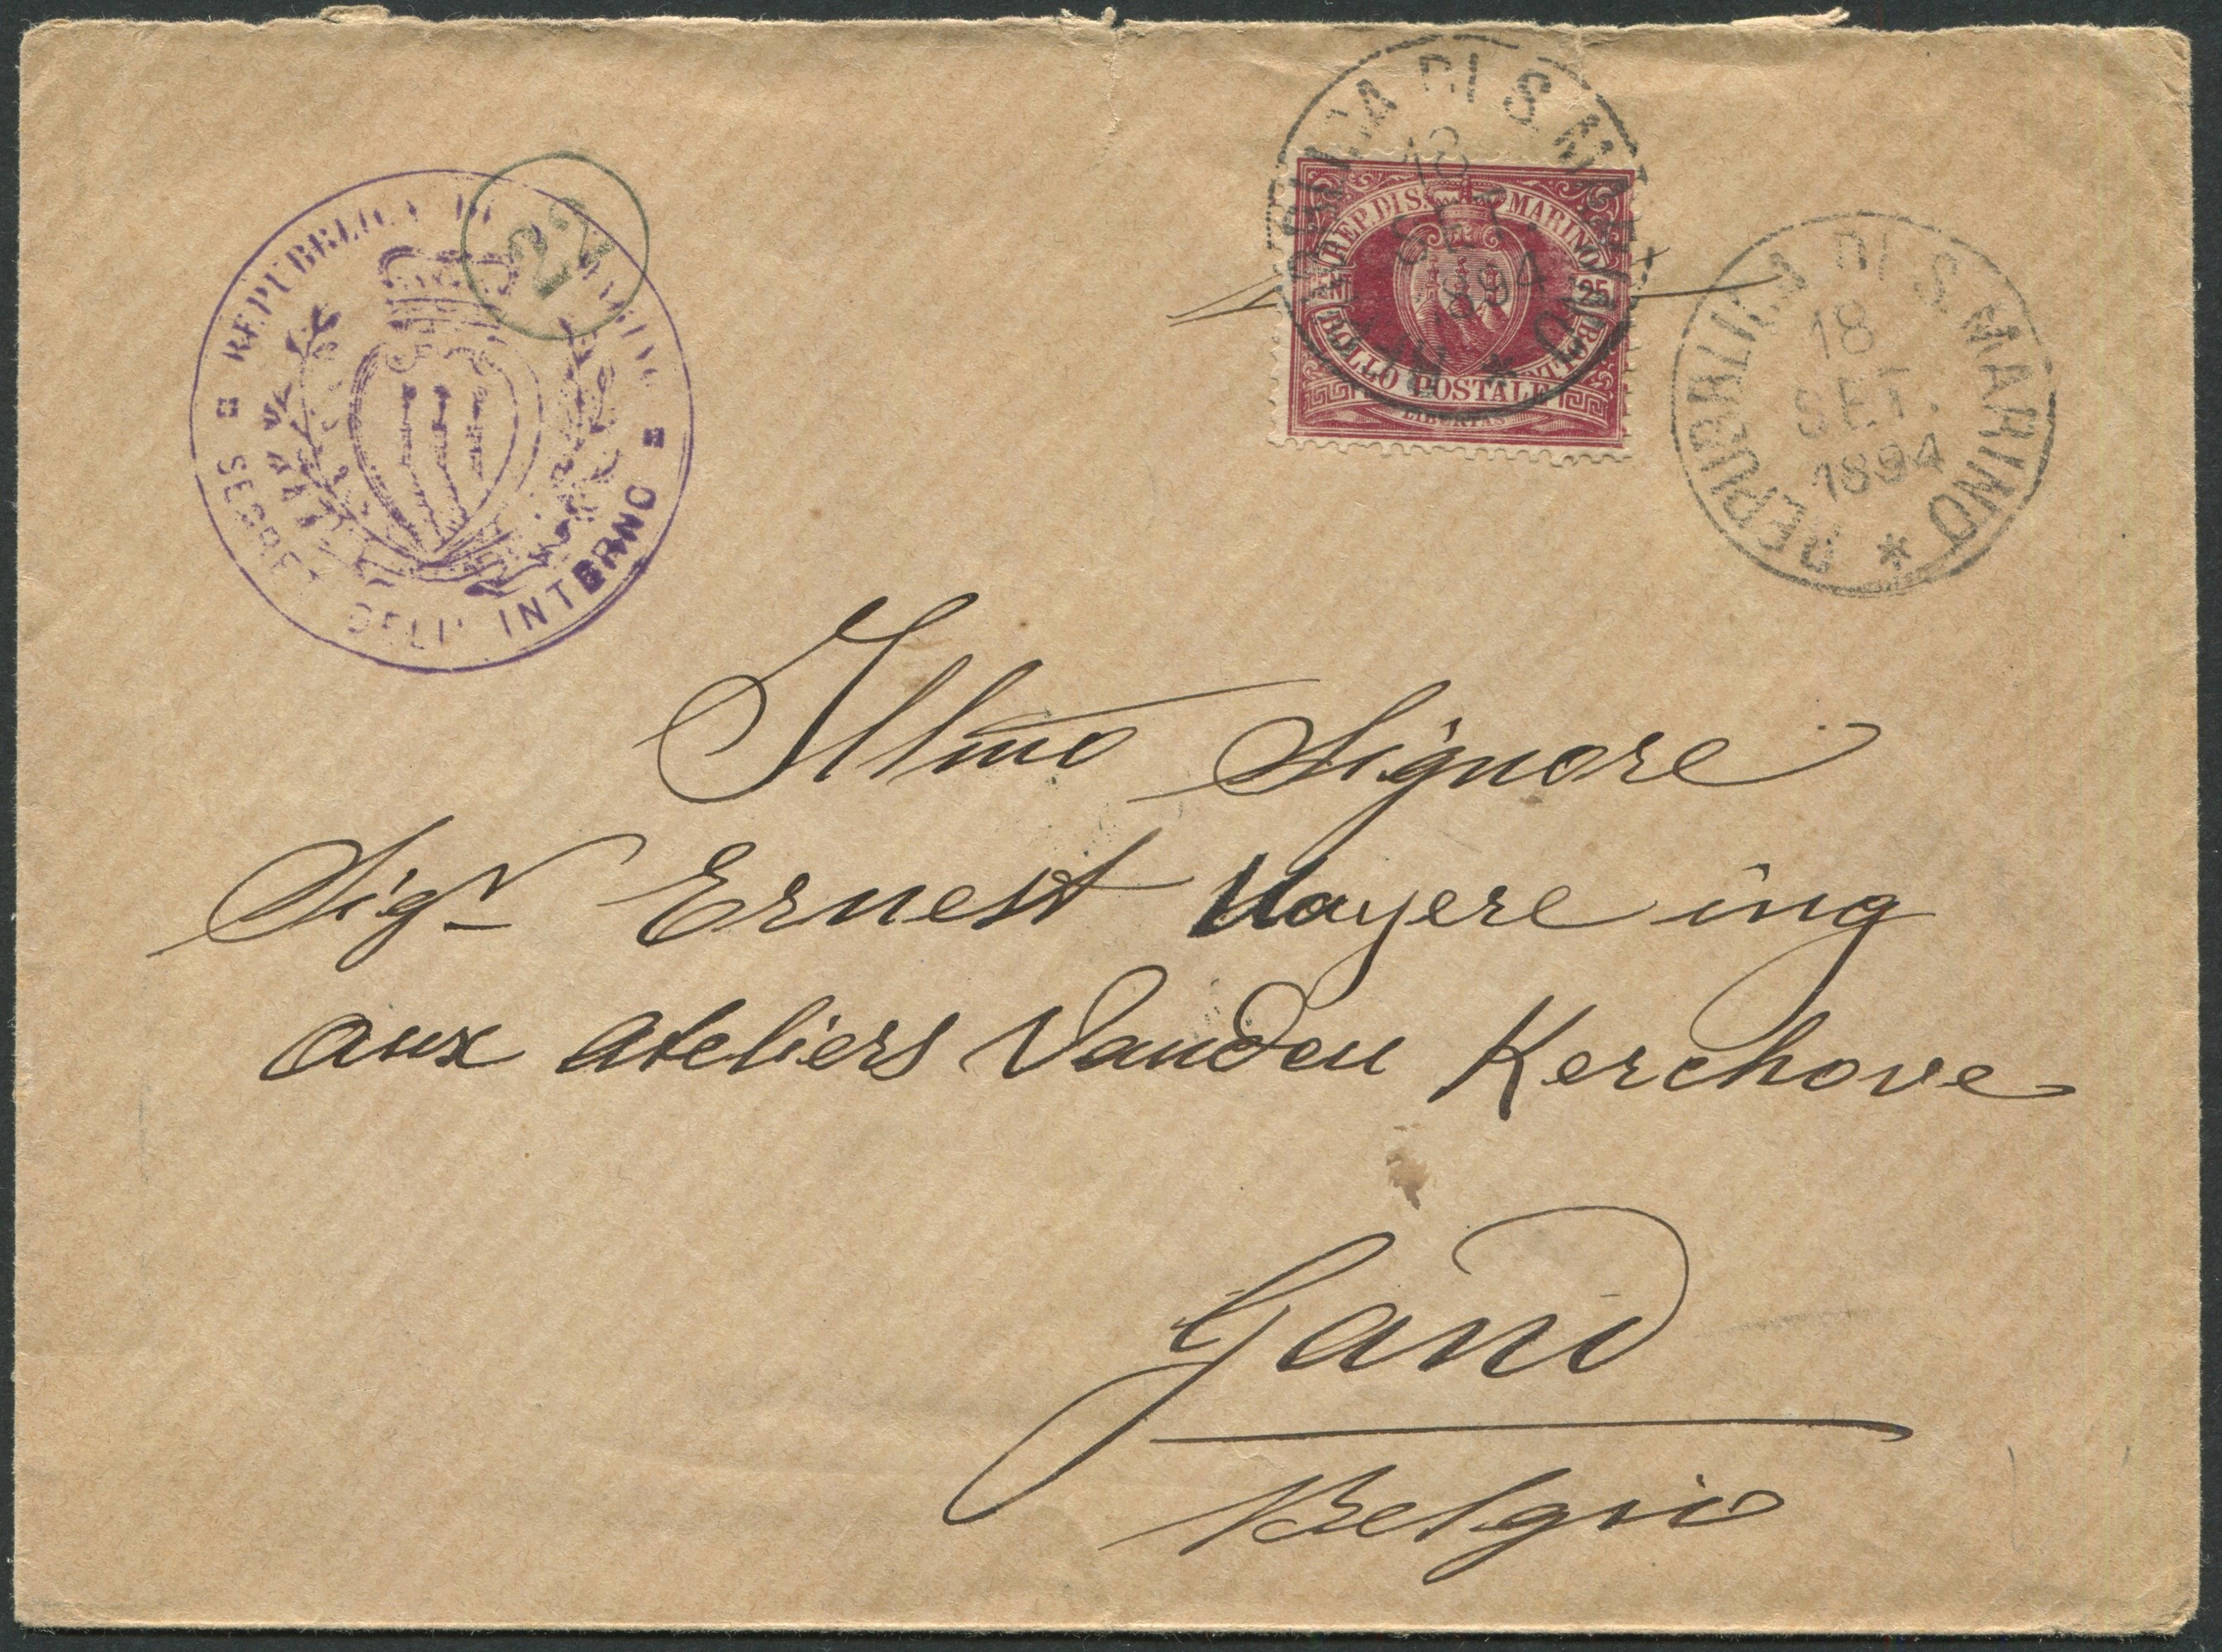 REPUBBLICA DI S. MARINO
SEGRET. DELL' INTERNO
22
REPUBBLICA DI S. MARINO
18
SET.
1894
REP. DI S. MARINO
25
BOLLO POSTALE
LIBERTAS
REPUBBLICA DI S. MARINO
18
SET.
1894
Illmo Signore
Sigr Ernest Mayere ing
aux ateliers Vanden Kerchove
Gand
Belgio